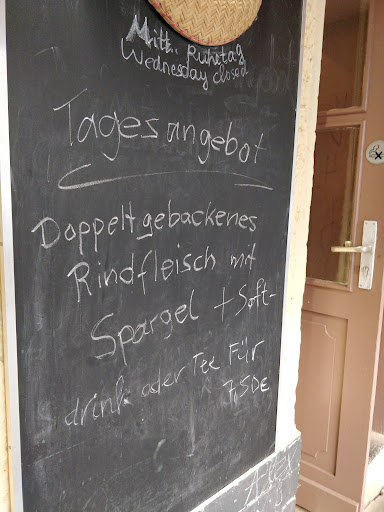 Mitt.. Ruhetag
Wednesday closed
Tagesangebot
Doppeltgebackenes
Rindfleisch mit
Spargel + Soft-
drink oder Tee Für
7,5DE